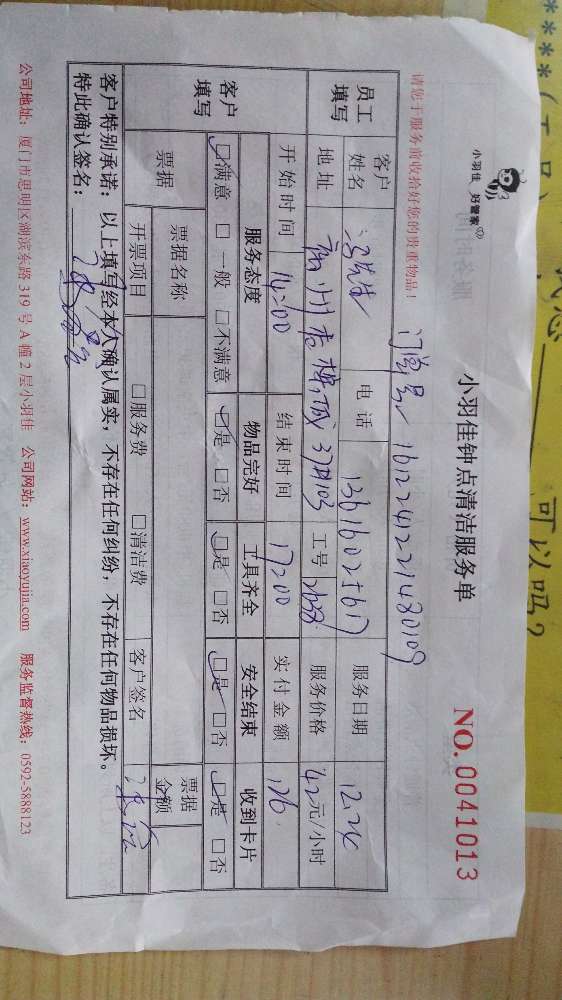 小羽佳 好管家
小羽佳钟点清洁服务单
NO. 0041013
请您于服务前收拾好您的贵重物品！
订单号：1612241221480109
员工填写
客户姓名 冯先生 电话 13616025617 服务日期 12.24
地址 37#103 工号 服务价格 42元/小时
客户填写
开始时间 14:00 结束时间 17:00 实付金额 126
服务态度 物品完好 工具齐全 安全结束 收到卡片
☑满意 □一般 □不满意 ☑是 □否 ☑是 □否 ☑是 □否 ☑是 □否
票据
票据名称 票据金额
开票项目 □服务费 □清洁费 客户签名
客户特别承诺：以上填写经本人确认属实，不存在任何纠纷，不存在任何物品损坏。
特此确认签名：
公司地址：厦门市思明区湖滨东路319号A幢2层小羽佳 公司网站：www.xiaoyujia.com 服务监督热线：0592-5888123
可以吗？